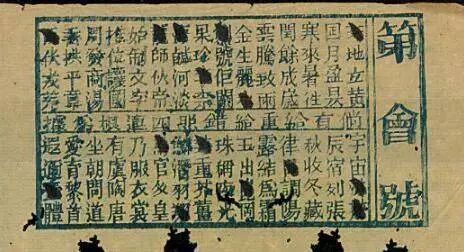 第會號
地玄黃宇宙
月盈昃辰宿列張
寒來暑往秋收冬藏
閏餘成歲律調陽
雲騰致雨露結爲霜
金生麗玉出岡
號巨闕珠稱光
果珍李重芥薑
鹹河淡潛羽翔
師火帝官人皇
始制文乃服衣裳
推位讓國有虞陶唐
周發商湯坐朝問道
垂拱平章愛育黎首
伏戎羌遐邇體